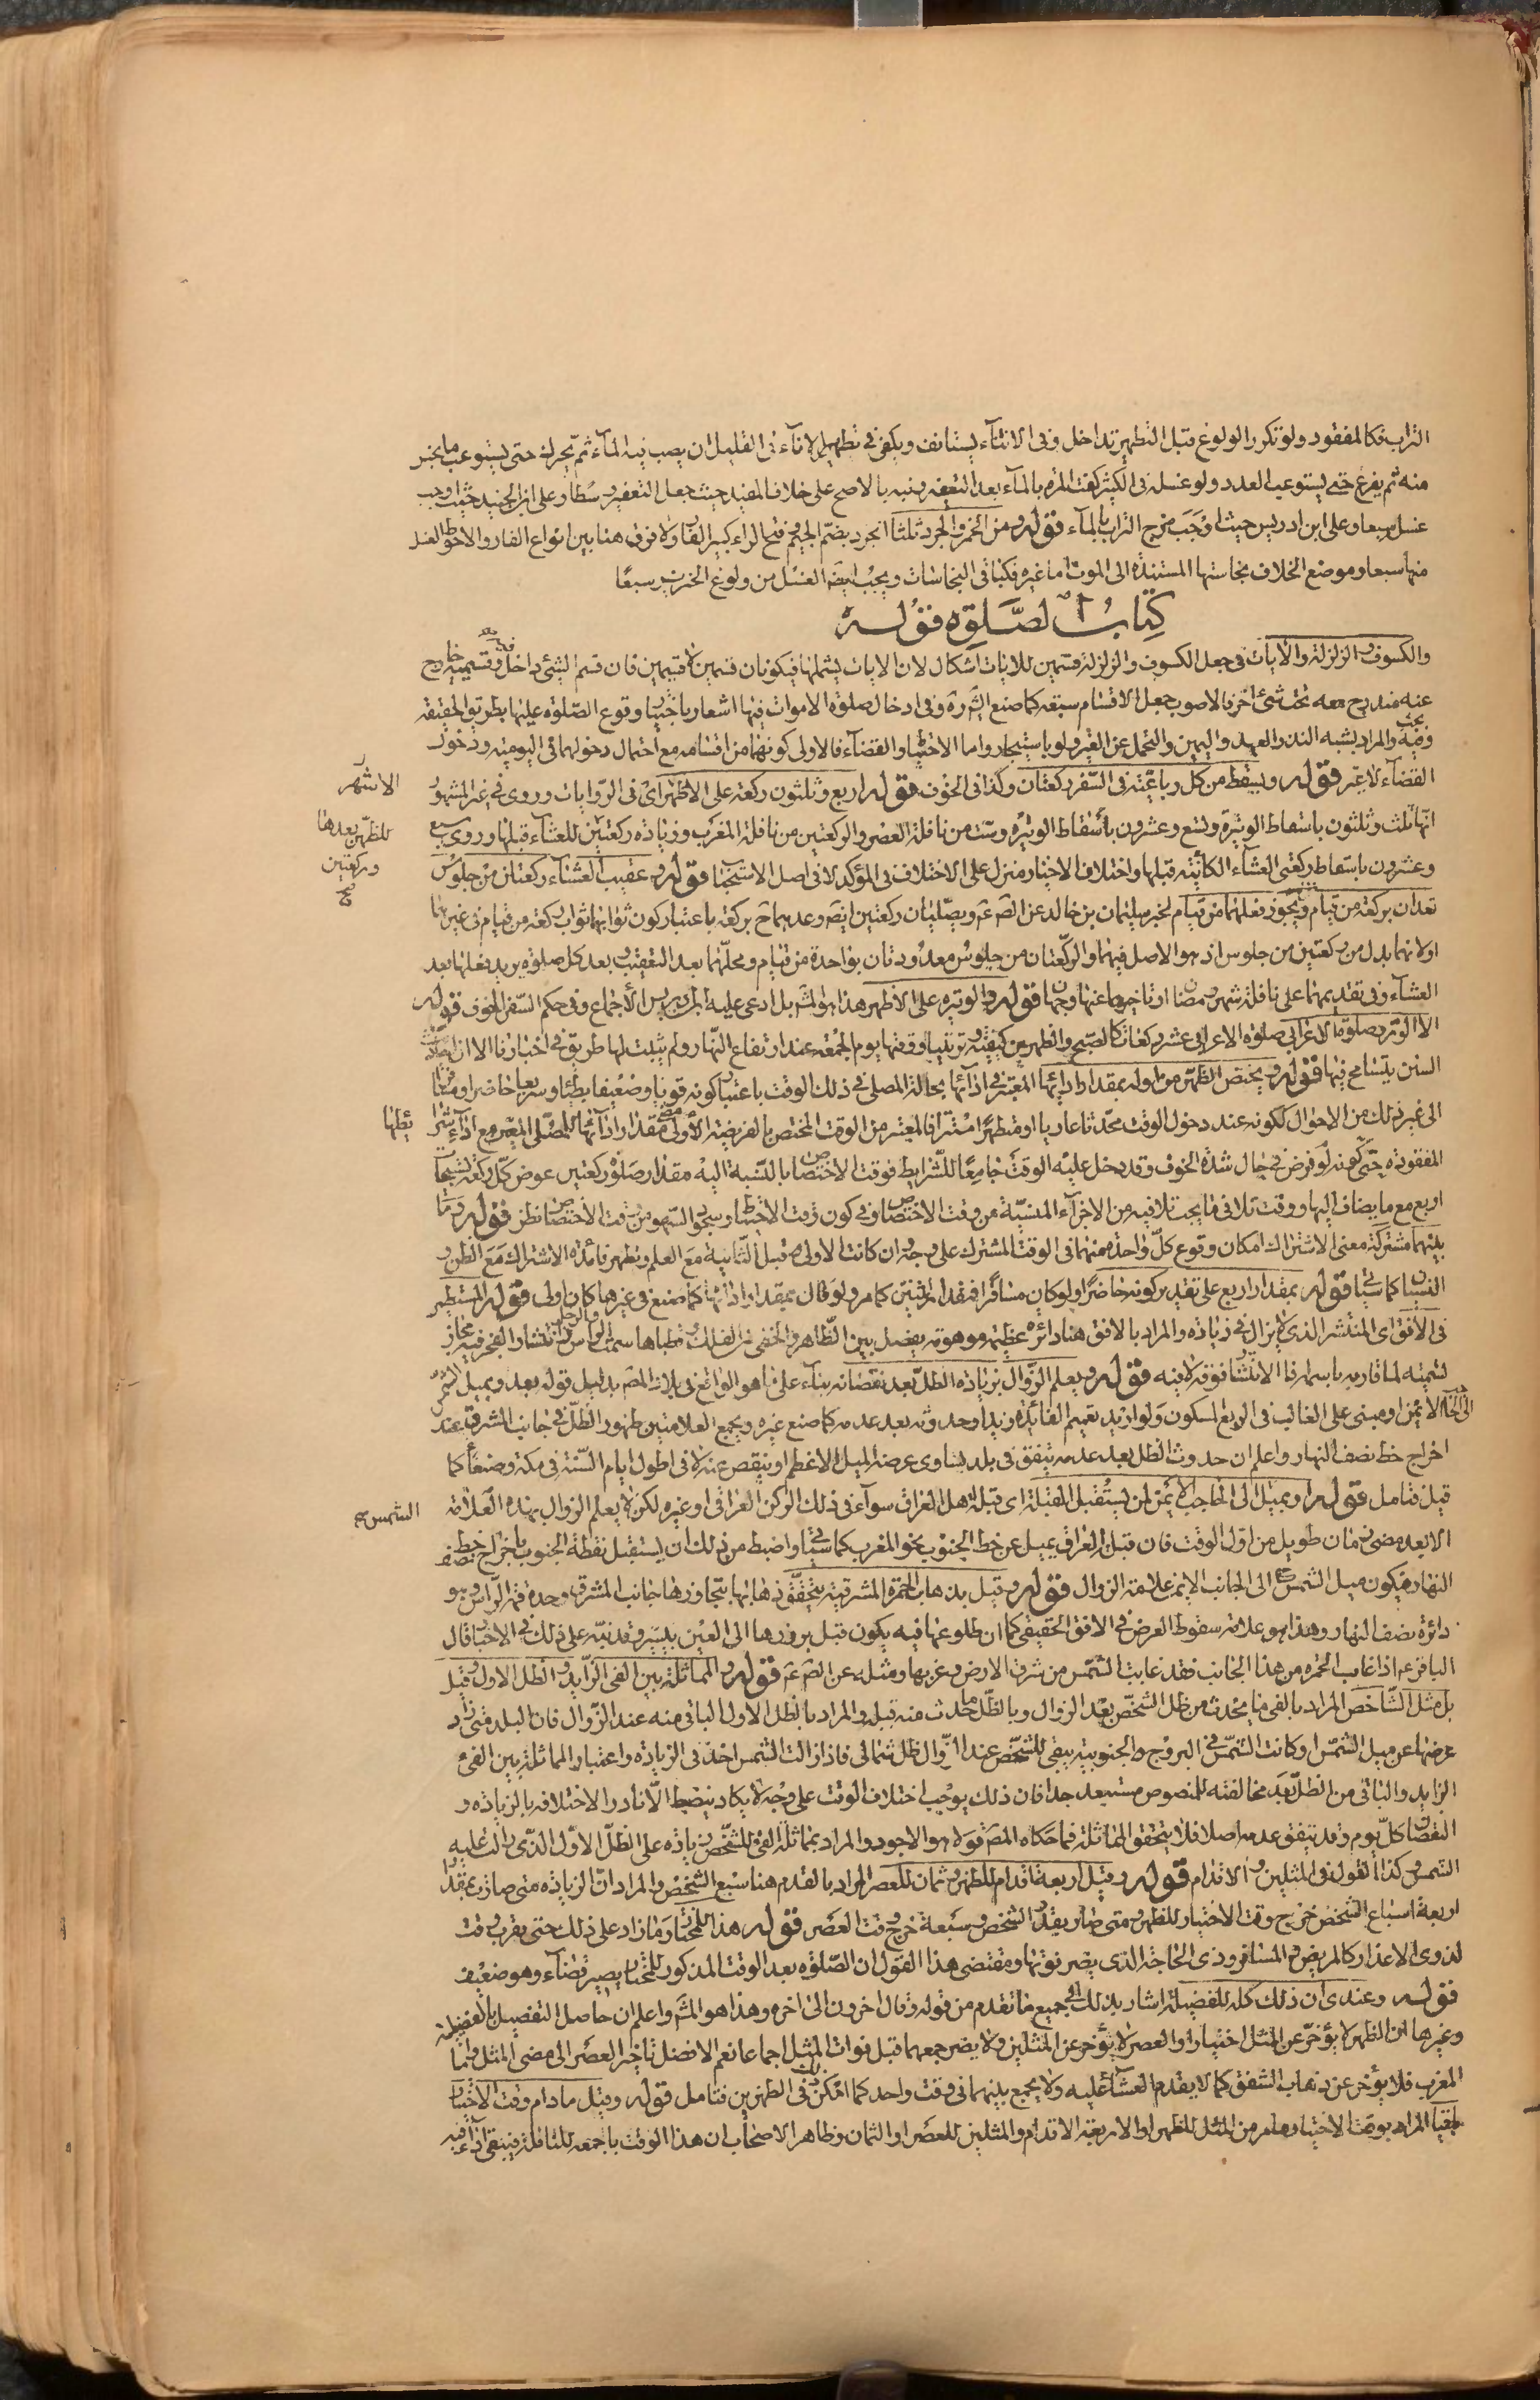 التراب فكالمفقود ولو تكرر الولوغ قبل التطهير تداخل وفى الاثناء يستانف ويكفى في تطهير الاناء فى القليل ان يصب فيه الماء ثم يحرك حتى يستوعب ما نجس
منه ثم يفرغ حتى يستوعب العدد ولو غسل فى الكثير كفت المرة بالماء بعد التعفير ونبه بالاصح على خلاف المفيد حيث جعل التعفير وسطا وعلى ابن الجنيد حيث اوجب
غسله سبعا وعلى ابن ادريس حيث اوجب مزج التراب بالماء قوله ومن الخمر والجرذ ثلثا الجرذ بضم الجيم وفتح الراء كبير الفار ولا فرق هنا بين انواع الفار والاحوط الغسل
منها سبعا وموضع الخلاف نجاستها المستندة الى الموت اما غيره فكباقى النجاسات ويجب ايضا الغسل من ولوغ الخنزير سبعا
كتاب الصلوة قوله
والكسوف والزلزلة والآيات فى جعل الكسوف والزلزلة قسمين للآيات اشكال لان الايات يشملها فيكونان قسمين لا قسيمين فان قسم الشئ داخل فيه وقسيمه خارج
عنه مندرج معه تحت شئ اخر فالاصوب جعل الاقسام سبعة كما صنع الشهيد ره وفى ادخال صلوة الاموات فيها اشعار باختيار وقوع الصلوة عليها بطريق الحقيقة
وفيه بحث والمراد بشبه النذر العهد واليمين والتحمل عن الغير ولو باستيجار واما الاحتياط والقضاء فالاولى كونهما من اقسامه مع احتمال دخولهما فى اليومية ودخول
القضاء لا غير قوله ويسقط من كل رباعية فى السفر ركعتان وكذا فى الخوف قوله اربع وثلثون ركعة على الاظهر اى فى الروايات وروى فى غير المشهور
الاشهر
انها ثلث وثلثون باسقاط الوتيرة وتسع وعشرون باسقاط الوتيرة وست من نافلة العصر والركعتين من نافلة المغرب وزيادة ركعتين للعشاء قبلها وروى سبع
للظهر بعدها
وركعتين
صح
وعشرون باسقاط ركعتى العشاء الكائنة قبلها واختلاف الاخبار منزل على الاختلاف فى المؤكد لا فى اصل الاستحباب قوله وعقيب العشاء ركعتان من جلوس
تعدان بركعة من قيام ويجوز فعلهما من قيام لخبر سليمان بن خالد عن الصادق ع ويصليان ركعتين ايضا وعدهما ح بركعة باعتبار كون ثوابهما ثواب ركعة من قيام فى غيرها
او لانهما بدل من ركعتين من جلوس اذ هو الاصل فيهما والركعتان من جلوس معدودتان بواحدة من قيام ومحلهما بعد التعقيب وبعد كل صلوة يريد فعلها بعد
العشاء وفى تقديمهما على نافلة شهر رمضان او تاخيرهما عنها وجهان قوله والوتيرة على الاظهر هذا هو المشهور بل ادعى عليه ابن ادريس الاجماع وفى حكم السفر الخوف قوله
الا الوتر وصلوة الاعرابى صلوة الاعرابى عشر ركعات كالصبح والظهرين كيفية وترتيبا ووقتها يوم الجمعة عند ارتفاع النهار ولم يثبت لها طريق فى اخبارنا الا ان احاديث
السنن يتسامح فيها قوله ويختص الظهر من اوله بمقدار ادائها المعتبر فى ادائها بحالة المصلى فى ذلك الوقت باعتبار كونه قويا وضعيفا بطيئا وسريعا حاضرا ومسافرا
الى غير ذلك من الاحوال ككونه عند دخول الوقت محدثا عاريا او متطهرا مستترا فالمعتبر من الوقت المختص بالفريضة الاولى مقدار ادائها للمصلى المعتبر مع اداء شرا
ئطها
المفقودة حتى كونه لو فرض فى حال شدة الخوف وقد دخل عليه الوقت جامعا للشرايط فوقت الاختصاص بالنسبة اليه مقدار صلوة ركعتين عوض كل ركعة تسبيحات
اربع مع ما يضاف اليها ووقت تلافى ما يجب تلافيه من الاجزاء المنسية من وقت الاختصاص وفى كون وقت الاحتياط وسجود السهو من وقت الاختصاص نظر قوله وما
بينهما مشتركة معنى الاشتراك امكان وقوع كل واحدة منهما فى الوقت المشترك على وجه وان كانت الاولى قبل الثانية مع العلم وتظهر فائدة الاشتراك مع الظن و
النسيان كما سيأتى قوله بمقدار اربع على تقدير كونه حاضرا ولو كان مسافرا فمقدار اثنتين كما مر ولو قال بمقدار ادائها كما صنع فى غيرها كان اولى قوله المستطير
فى الافق اى المنتشر الذى لا يزال فى زيادة والمراد بالافق هنا دائرة عظيمة موهومة يفصل بين الظاهر والخفى من الفلك قطباها سمت الراس والرجل وانتشار الفجر فيه مجاز
تسمية لما قاربه باسمه فان الانتشار فوقه لا فيه قوله ويعلم الزوال بزيادة الظل بعد نقصانه بناء على ما هو الواقع فى بلاد المصنف بدليل قوله بعد ويميل الشمس
الى الحاجب الايمن او مبنى على الغالب فى الربع المسكون ولو اريد تعميم الفائدة زيد او حدوثه بعد عدمه كما صنع غيره ويجمع العلامتين ظهور الظل فى جانب المشرق عند
اخراج خط نصف النهار واعلم ان حدوث الظل بعد عدمه يتفق فى بلد يساوى عرضه الميل الاعظم او ينقص عنه لا فى اطول ايام السنة فى مكة وصنعا كما
قيل فتامل قوله او بميل الى الحاجب الايمن لمن يستقبل القبلة اى قبلة اهل العراق سواء فى ذلك الركن العراقى او غيره لكن لا يعلم الزوال بهذه العلامة
الشمس صح
الا بعد مضى زمان طويل من اول الوقت فان قبلة العراق يميل عن خط الجنوب نحو المغرب كما سيأتى واضبط من ذلك ان يستقبل نقطة الجنوب باخراج خط نصف
النهار فيكون ميل الشمس ح الى الجانب الايمن علامة الزوال قوله وقيل بذهاب الحمرة المشرقية يتحقق ذهابها بتجاوزها جانب المشرق وحده قمة الراس وهو
دائرة نصف النهار وهذا هو علامة سقوط القرص فى الافق الحقيقى كما ان طلوعها فيه يكون قبل بروزها الى العين بيسير وقد نبه على ذلك فى الاخبار قال
الباقر ع اذا غاب الحمرة من هذا الجانب فقد غابت الشمس من شرق الارض وغربها ومثله عن الصادق ع قوله والمماثلة بين الفئ الزايد والظل الاول وقيل
بل مثل الشاخص المراد بالفئ ما يحدث من ظل الشخص بعد الزوال وبالظل ما حدث منه قبله والمراد بالظل الاول الباقى منه عند الزوال فان البلد متى زاد
عرضها عن ميل الشمس او كانت الشمس فى البروج الجنوبية يبقى للشخص عند الزوال ظل شمالى فاذا زالت الشمس اخذ فى الزيادة واعتبار المماثلة بين الفئ
الزايد والباقى من الظل بعد مخالفته للنصوص مستبعد جدا فان ذلك يوجب اختلاف الوقت على وجه لا يكاد ينضبط الا نادرا لاختلافه بالزيادة و
النقصان كل يوم وقد يتفق عدمه اصلا فلا يتحقق المماثلة فما حكاه المصنف قولا هو الاجود والمراد بمماثلة الفئ للشخص زيادة على الظل الاول الذى زالت عليه
الشمس وكذا القول فى المثلين والاقدام قوله وقيل اربعة اقدام للظهر وثمان للعصر المراد بالقدم هنا سبع الشخص والمراد ان الزيادة متى صارت بمقدار
اربعة اسباع الشخص خرج وقت الاختيار للظهر ومتى صار بقدر الشخص وسبعة خرج وقت العصر قوله هذا للمختار وما زاد على ذلك حتى يقرب وقت
لذوى الاعذار كالمريض والمسافر وذى الحاجة الذى يضر فوتها ومقتضى هذا القول ان الصلوة بعد الوقت المذكور للمختار يصير قضاء وهو ضعيف
قوله وعندى ان ذلك كله للفضيلة اشار بذلك الى جميع ما تقدم من قوله وقال اخرون الى اخره وهذا هو المشهور واعلم ان حاصل التفصيل بالفضيلة
وغيرها ان الظهر لا يؤخر عن المثل اختيارا والعصر لا يؤخر عن المثلين ولا يضر جمعهما قبل فوات المثل اجماعا نعم الافضل تاخير العصر الى مضى المثل واما
المغرب فلا يؤخر عن ذهاب الشفق كما لا يقدم العشاء عليه ولا يجمع بينهما فى وقت واحد كما امكن ذلك فى الظهرين فتامل قوله وقيل ما دام وقت الاختيار
باقيا المراد بوقت الاختيار ما مر من المثل للظهر او الاربعة الاقدام والمثلين للعصر او الثمان وظاهر الاصحاب ان هذا الوقت باجمعه للنافلة فينبغى اداء